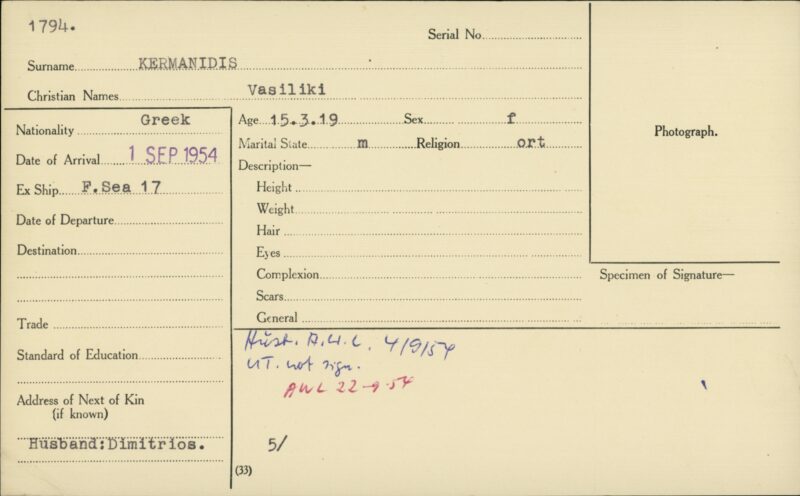 1794.
Serial No.
Surname KERMANIDIS
Christian Names Vasiliki
Nationality Greek
Date of Arrival 1 SEP 1954
Ex Ship F.Sea 17
Date of Departure
Destination
Trade
Standard of Education
Address of Next of Kin
(if known)
Husband:Dimitrios.
Age 15.3.19 Sex f
Marital State m Religion ort
Description—
Height
Weight
Hair
Eyes
Complexion
Scars
General
Photograph.
Specimen of Signature—
A.W.L. 4/9/54
not sign.
AWL 22-9-54
5/
(33)